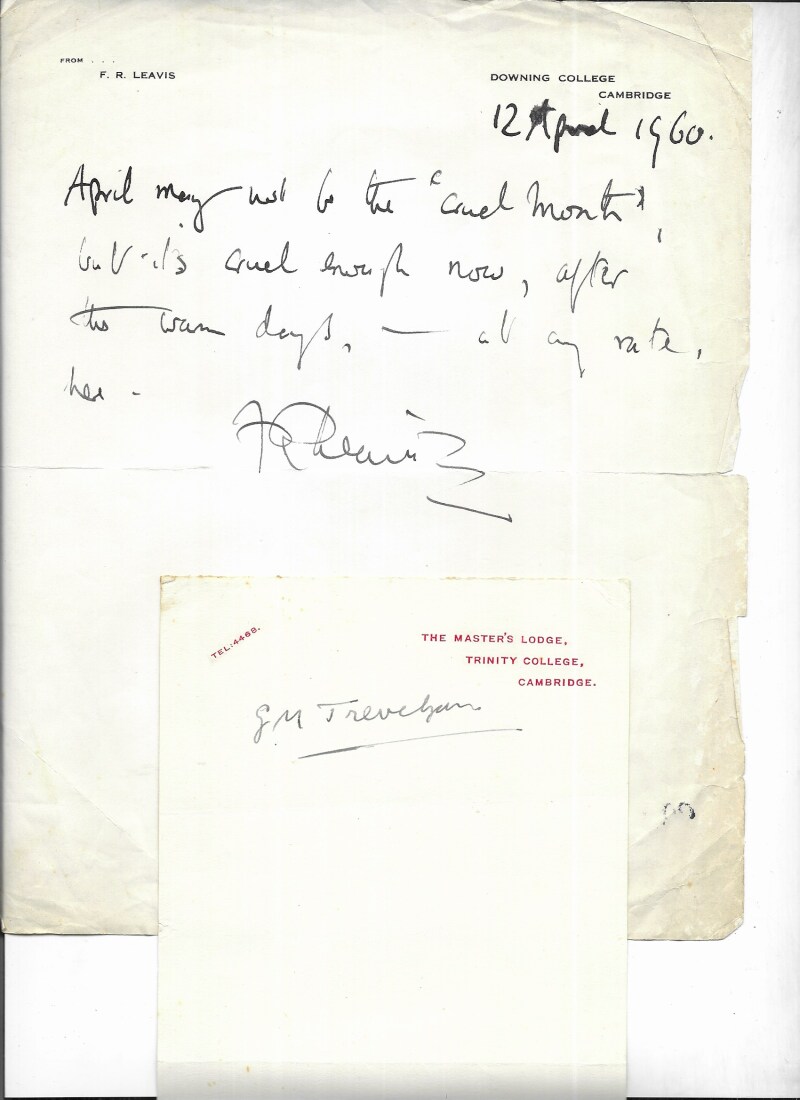 FROM . . .
F. R. LEAVIS
DOWNING COLLEGE
CAMBRIDGE
12 April 1960.
April may not be the "cruel month",
but it's cruel enough now, after
the warm days, — at any rate,
here.
FR Leavis
TEL: 4468.
THE MASTER'S LODGE,
TRINITY COLLEGE,
CAMBRIDGE.
G M Trevelyan